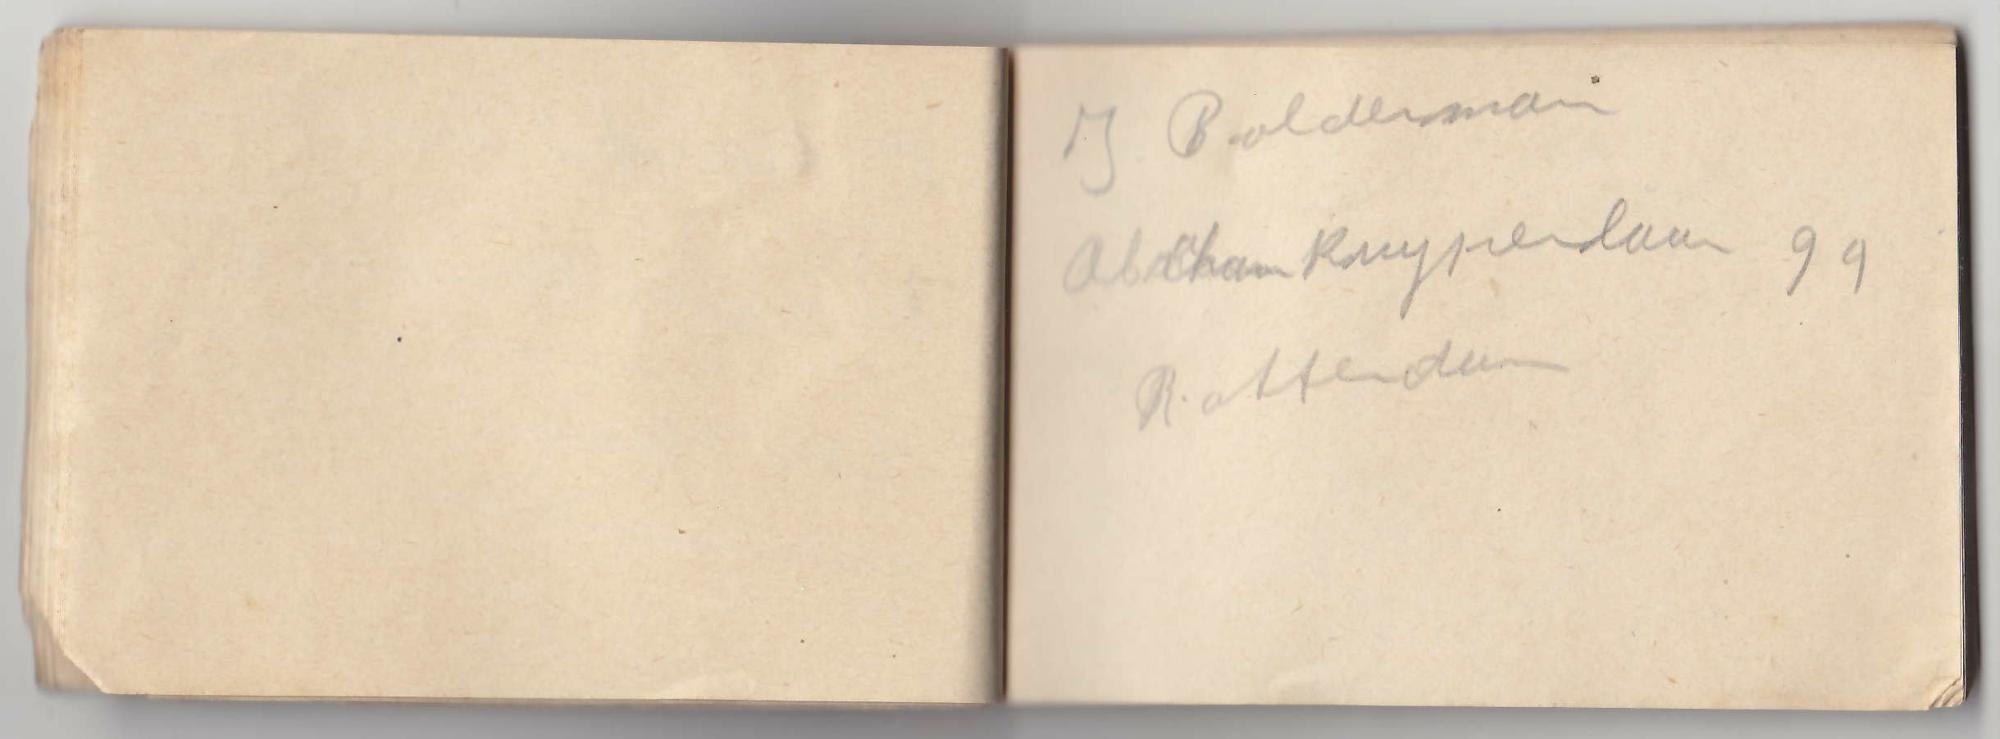 IJ Bolderman
Abraham Kuyperlaan 99
Rotterdam